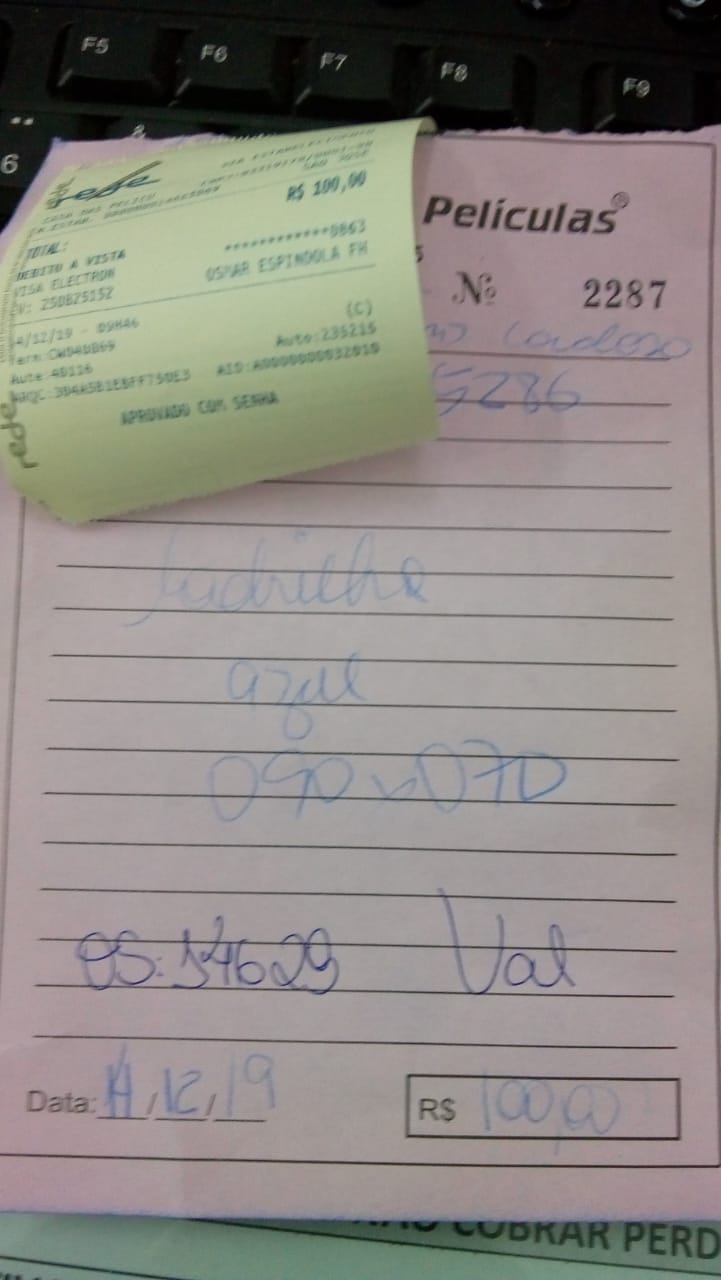 F5 F6 F7 F8 F9
6 &
rede
rede
VIA ESTABELECIMENTO
SAO JOSE
R$ 100,00
TOTAL:
DEBITO A VISTA
************0863
VISA ELECTRON
OSMAR ESPINDOLA FH
CV: 250825152
4/12/19 - 09H46
(C)
Term:CW040B69
Auto:235215
Aute:40116
AID:A0000000032010
APROVADO COM SENHA
rede
Películas®
Nº 2287
Cardoso
5286
Ladrilho
azul
090x070
OS: 14629 Val
Data: 14/12/19
R$ 100,00
NÃO COBRAR PERD